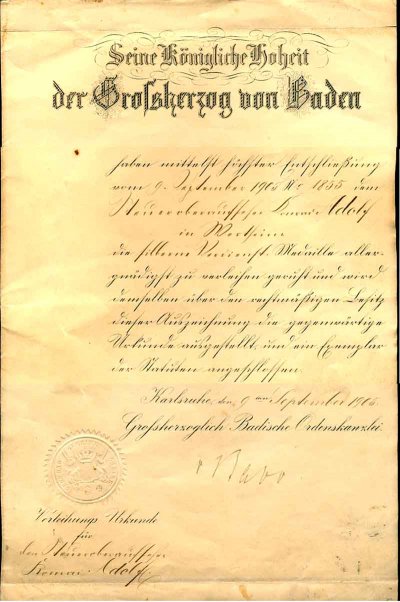 Seine Königliche Hoheit
der Grossherzog von Baden
haben mittelst höchster Entschließung
vom 9. September 1906 No 1855 dem
Steueroberaufseher Konrad Adolf
in Wertheim
die silberne Verdienst Medaille aller-
gnädigst zu verleihen geruht und wird
demselben über den rechtmäßigen Besitz
dieser Auszeichnung die gegenwärtige
Urkunde ausgestellt, und ein Exemplar
der Statuten angeschlossen.
Karlsruhe, den 9ten September 1906.
Grossherzoglich Badische Ordenskanzlei.
Verleihungs Urkunde
für
den Steueroberaufseher
Konrad Adolf.